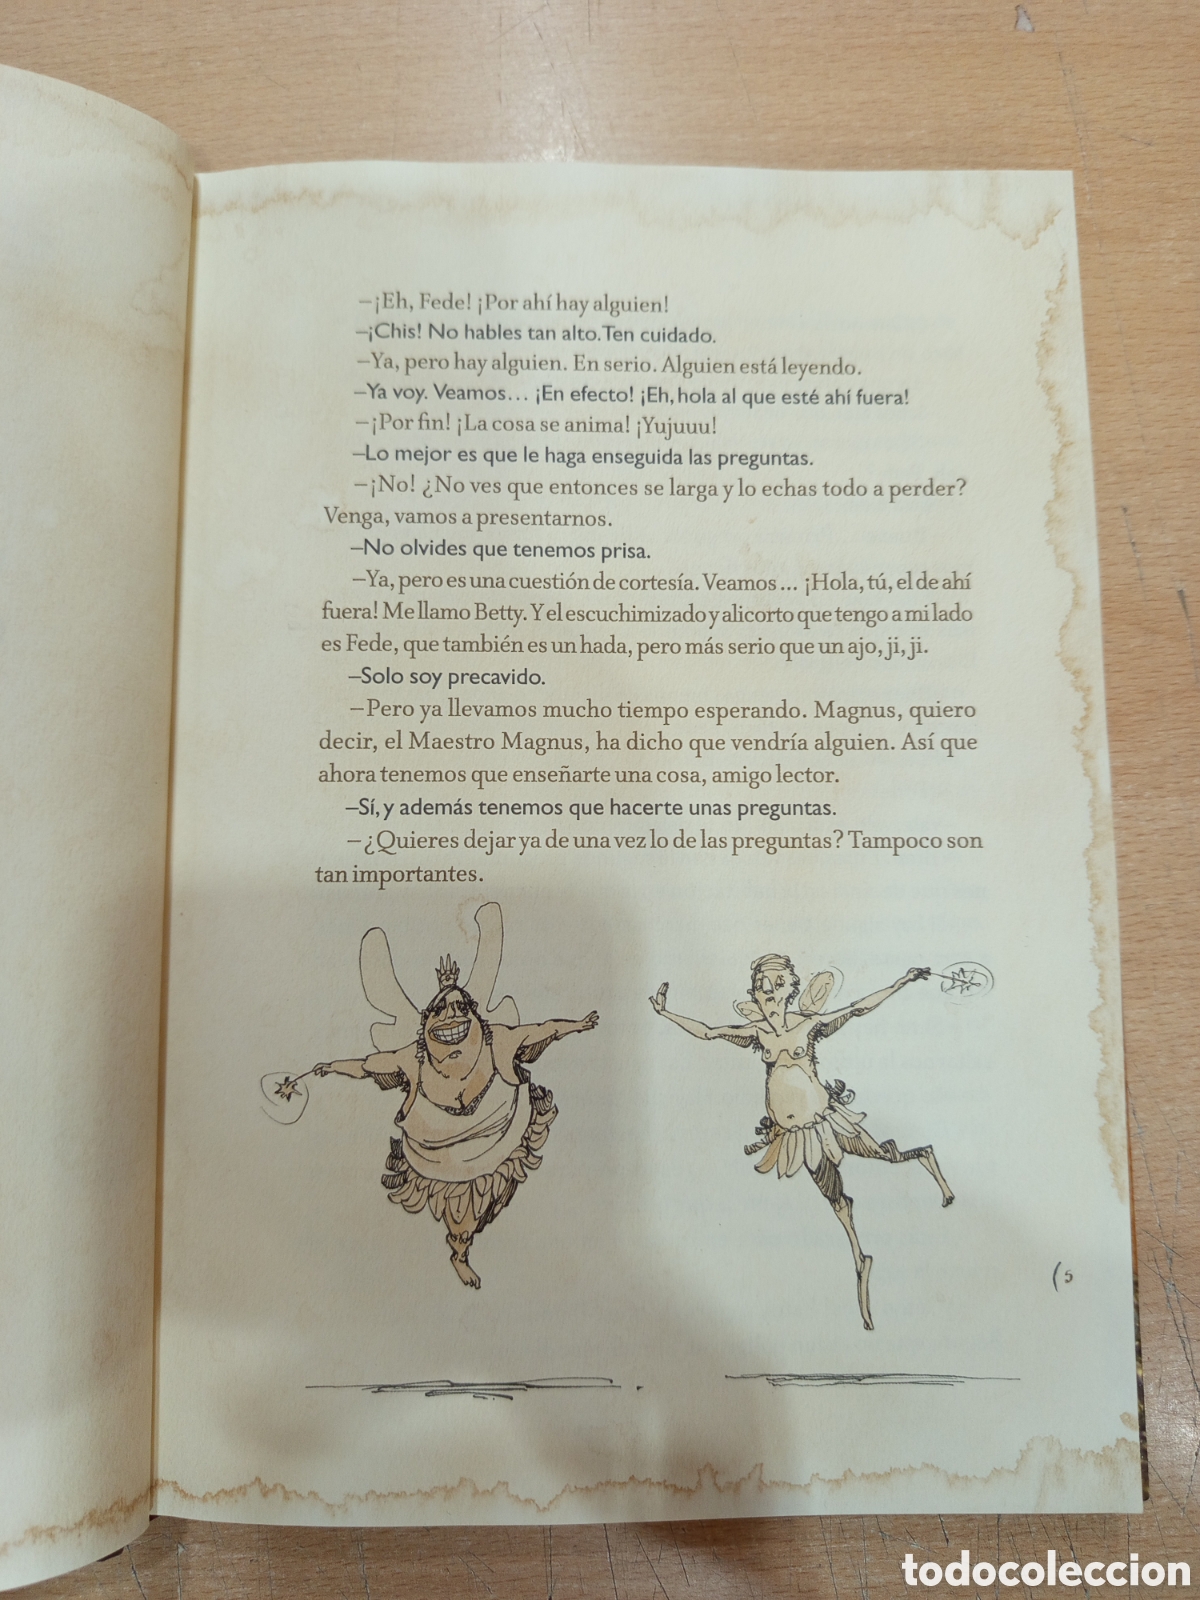 –¡Eh, Fede! ¡Por ahí hay alguien!
–¡Chis! No hables tan alto. Ten cuidado.
–Ya, pero hay alguien. En serio. Alguien está leyendo.
–Ya voy. Veamos... ¡En efecto! ¡Eh, hola al que esté ahí fuera!
–¡Por fin! ¡La cosa se anima! ¡Yujuuu!
–Lo mejor es que le haga enseguida las preguntas.
–¡No! ¿No ves que entonces se larga y lo echas todo a perder?
Venga, vamos a presentarnos.
–No olvides que tenemos prisa.
–Ya, pero es una cuestión de cortesía. Veamos... ¡Hola, tú, el de ahí
fuera! Me llamo Betty. Y el escuchimizado y alicorto que tengo a mi lado
es Fede, que también es un hada, pero más serio que un ajo, ji, ji.
–Solo soy precavido.
–Pero ya llevamos mucho tiempo esperando. Magnus, quiero
decir, el Maestro Magnus, ha dicho que vendría alguien. Así que
ahora tenemos que enseñarte una cosa, amigo lector.
–Sí, y además tenemos que hacerte unas preguntas.
–¿Quieres dejar ya de una vez lo de las preguntas? Tampoco son
tan importantes.
( 5
todocoleccion